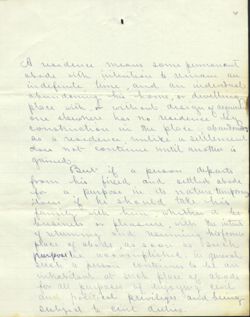 A residence means some permanent
abode with intention to remain an
indefinite time, and an individual
abandoning his home, or dwelling
place with or without design of acquiring
one elsewhere has no residence by
construction in the place abandoned
as a residence unlike a settlement
does not continue until another is
gained.
But if a person departs
from his fixed and settled abode
for a purpose in its nature temporary
even if he should take his
family with him, whether it be
business or pleasure, with the intent
of returning to his
place of abode, as soon as such
purpose is accomplished, in general
such a person continues to be an
inhabitant at such place of abode
for all purposes of enjoying civil
and political privileges and being
subject to civil duties.